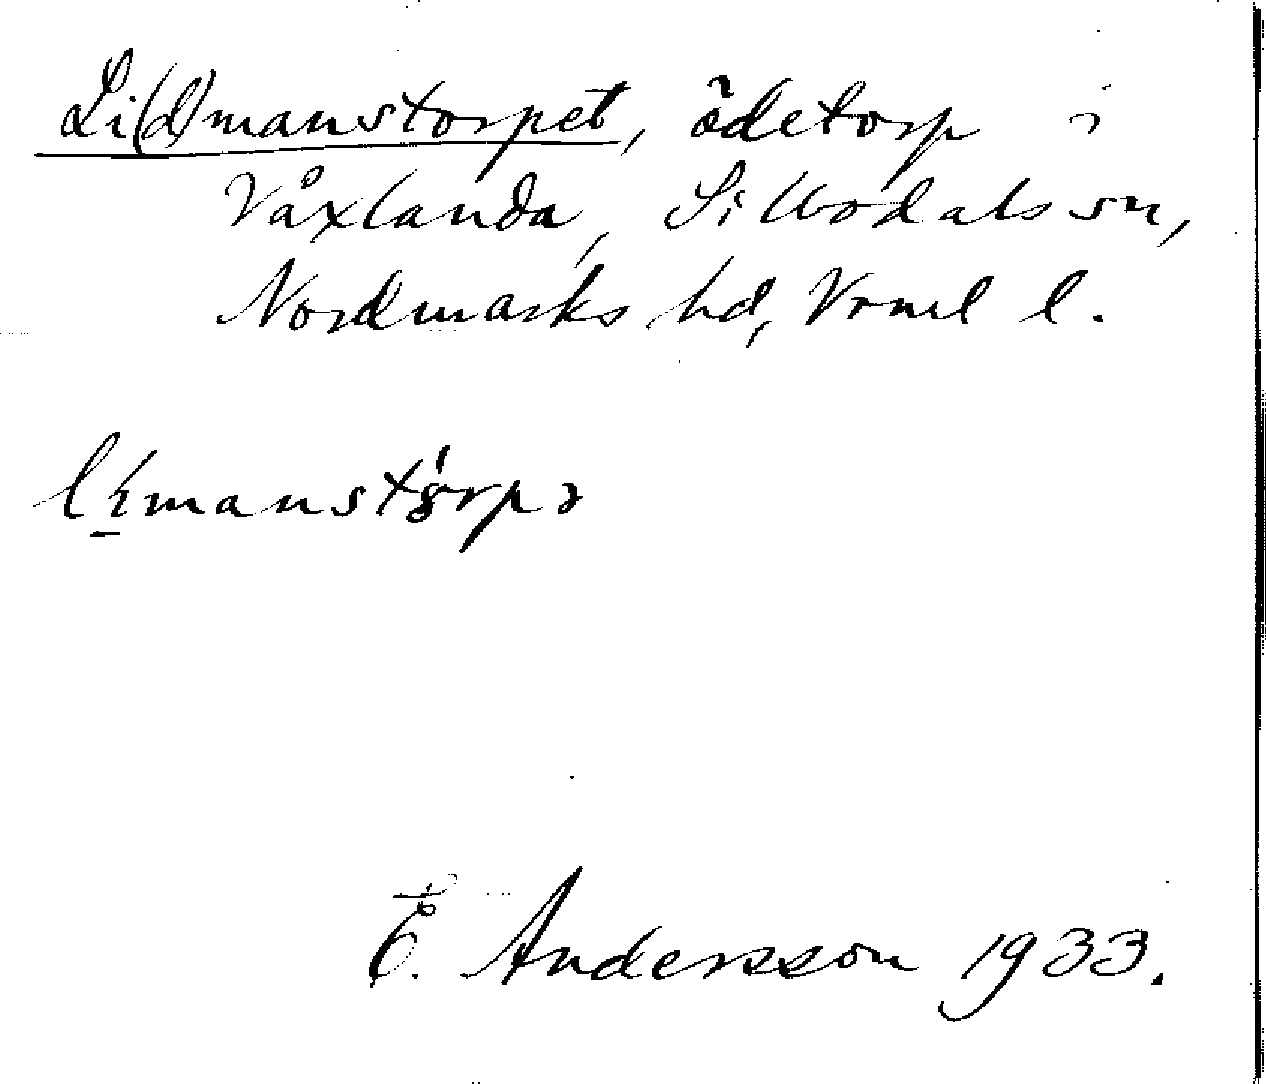 Li(d)manstorpet, ödetorp i
Våxlanda, Sillbodals sn,
Nordmarks hd, Vrml l.
li̱manstórpə
E. Andersson 1933.